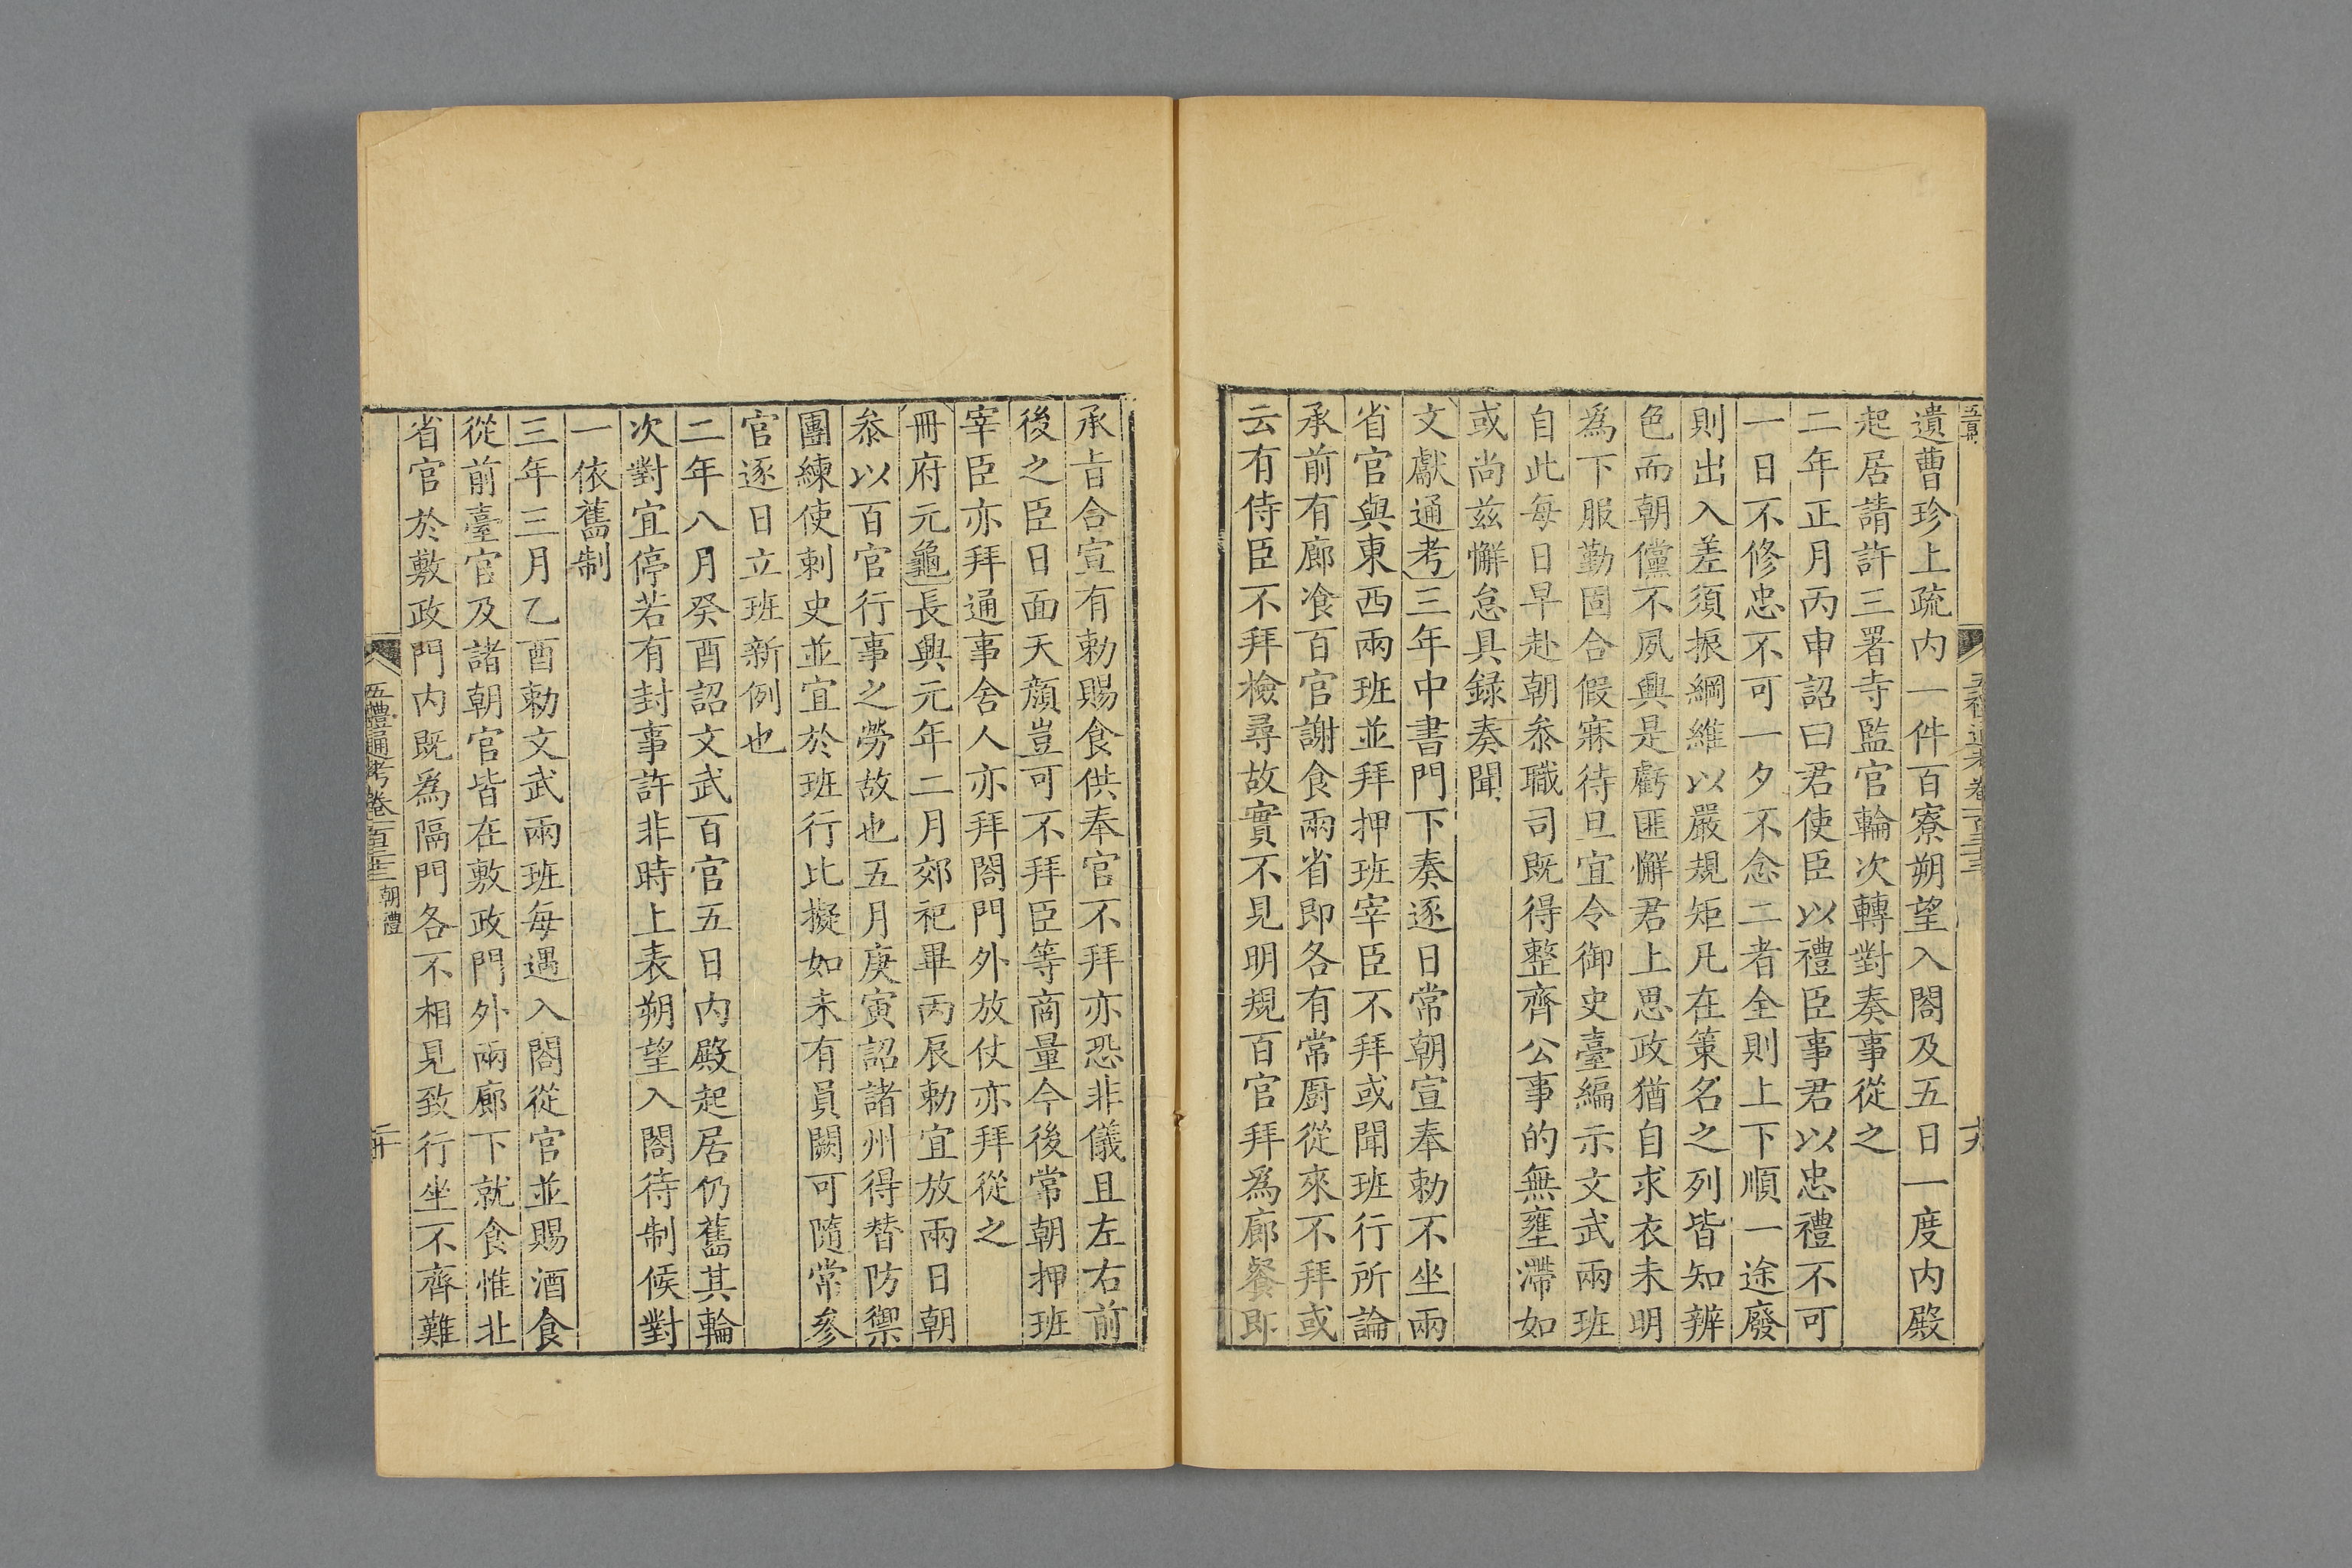 遺曹珍上疏内一件百寮朔望入閤及五日一度内殿
起居請許三署寺監官輪次轉對奏事從之
二年正月丙申詔曰君使臣以禮臣事君以忠禮不可
一日不修忠不可一夕不念二者全則上下順一途廢
則出入差須振綱維以嚴規矩凡在策名之列皆知辨
色而朝儻不夙興是虧匪懈君上思政猶自求衣未明
為下服勤固合假寐待旦宜令御史臺編示文武兩班
自此每日早赴朝叅職司既得整齊公事的無壅滯如
或尚兹懈怠具録奏聞
文獻通考三年中書門下奏逐日常朝宣奉勅不坐兩
省官與東西兩班並拜押班宰臣不拜或聞班行所論
承前有廊飡百官謝食兩省即各有常厨從來不拜或
云有侍臣不拜檢尋故實不見明規百官拜為廊餐即
承旨合宣有勅賜食供奉官不拜亦恐非儀且左右前
後之臣日面天顔豈可不拜臣等商量今後常朝押班
宰臣亦拜通事舍人亦拜閤門外放仗亦拜從之
冊府元龜長興元年二月郊祀畢丙辰勅宜放兩日朝
叅以百官行事之勞故也五月庚寅詔諸州得替防禦
團練使刺史並宜於班行比擬如未有員闕可隨常參
官逐日立班新例也
二年八月癸酉詔文武百官五日内殿起居仍舊其輪
次對宜停若有封事許非時上表朔望入閤待制候對
一依舊制
三年三月乙酉勅文武兩班每遇入閤從官並賜酒食
從前臺官及諸朝官皆在敷政門外兩廊下就食惟北
省官於敷政門内既為隔門各不相見致行坐不齊難
五禮通考卷一百三十三 朝禮
二十